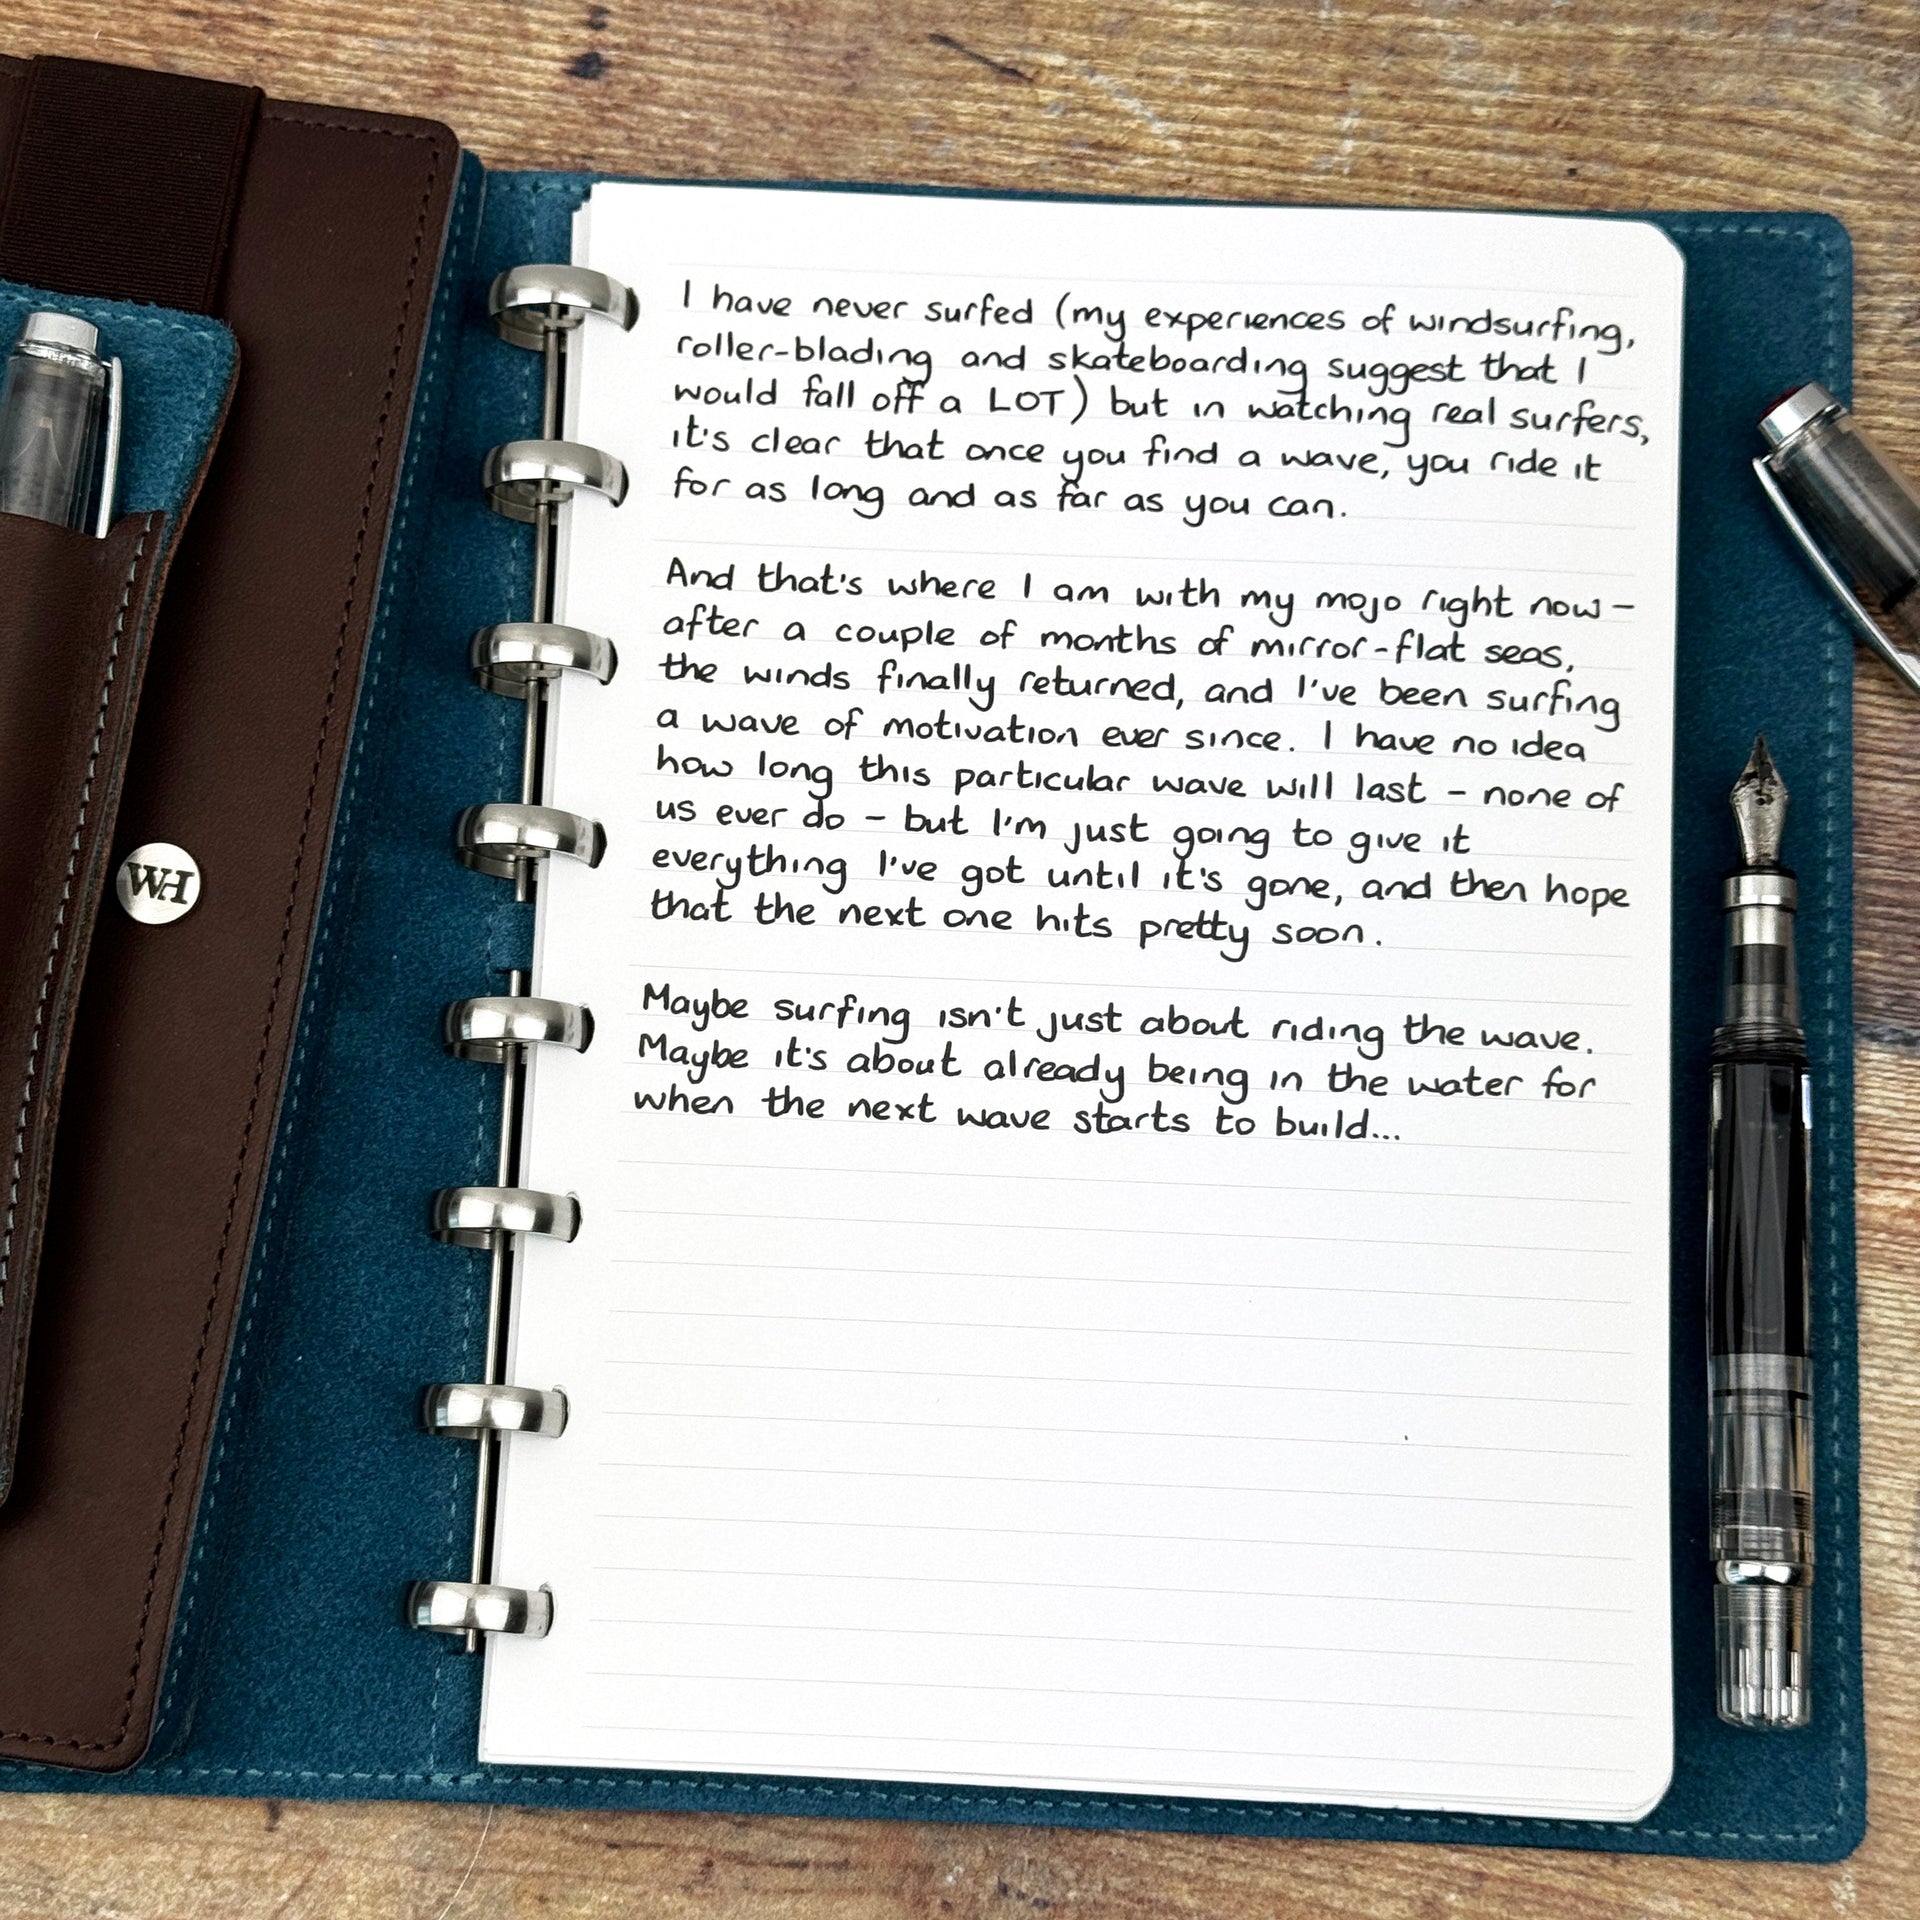 I have never surfed (my experiences of windsurfing,
roller-blading and skateboarding suggest that I
would fall off a LOT) but in watching real surfers,
it's clear that once you find a wave, you ride it
for as long and as far as you can.
And that's where I am with my mojo right now –
after a couple of months of mirror-flat seas,
the winds finally returned, and I've been surfing
a wave of motivation ever since. I have no idea
how long this particular wave will last – none of
us ever do – but I'm just going to give it
everything I've got until it's gone, and then hope
that the next one hits pretty soon.
Maybe surfing isn't just about riding the wave.
Maybe it's about already being in the water for
when the next wave starts to build...
WH